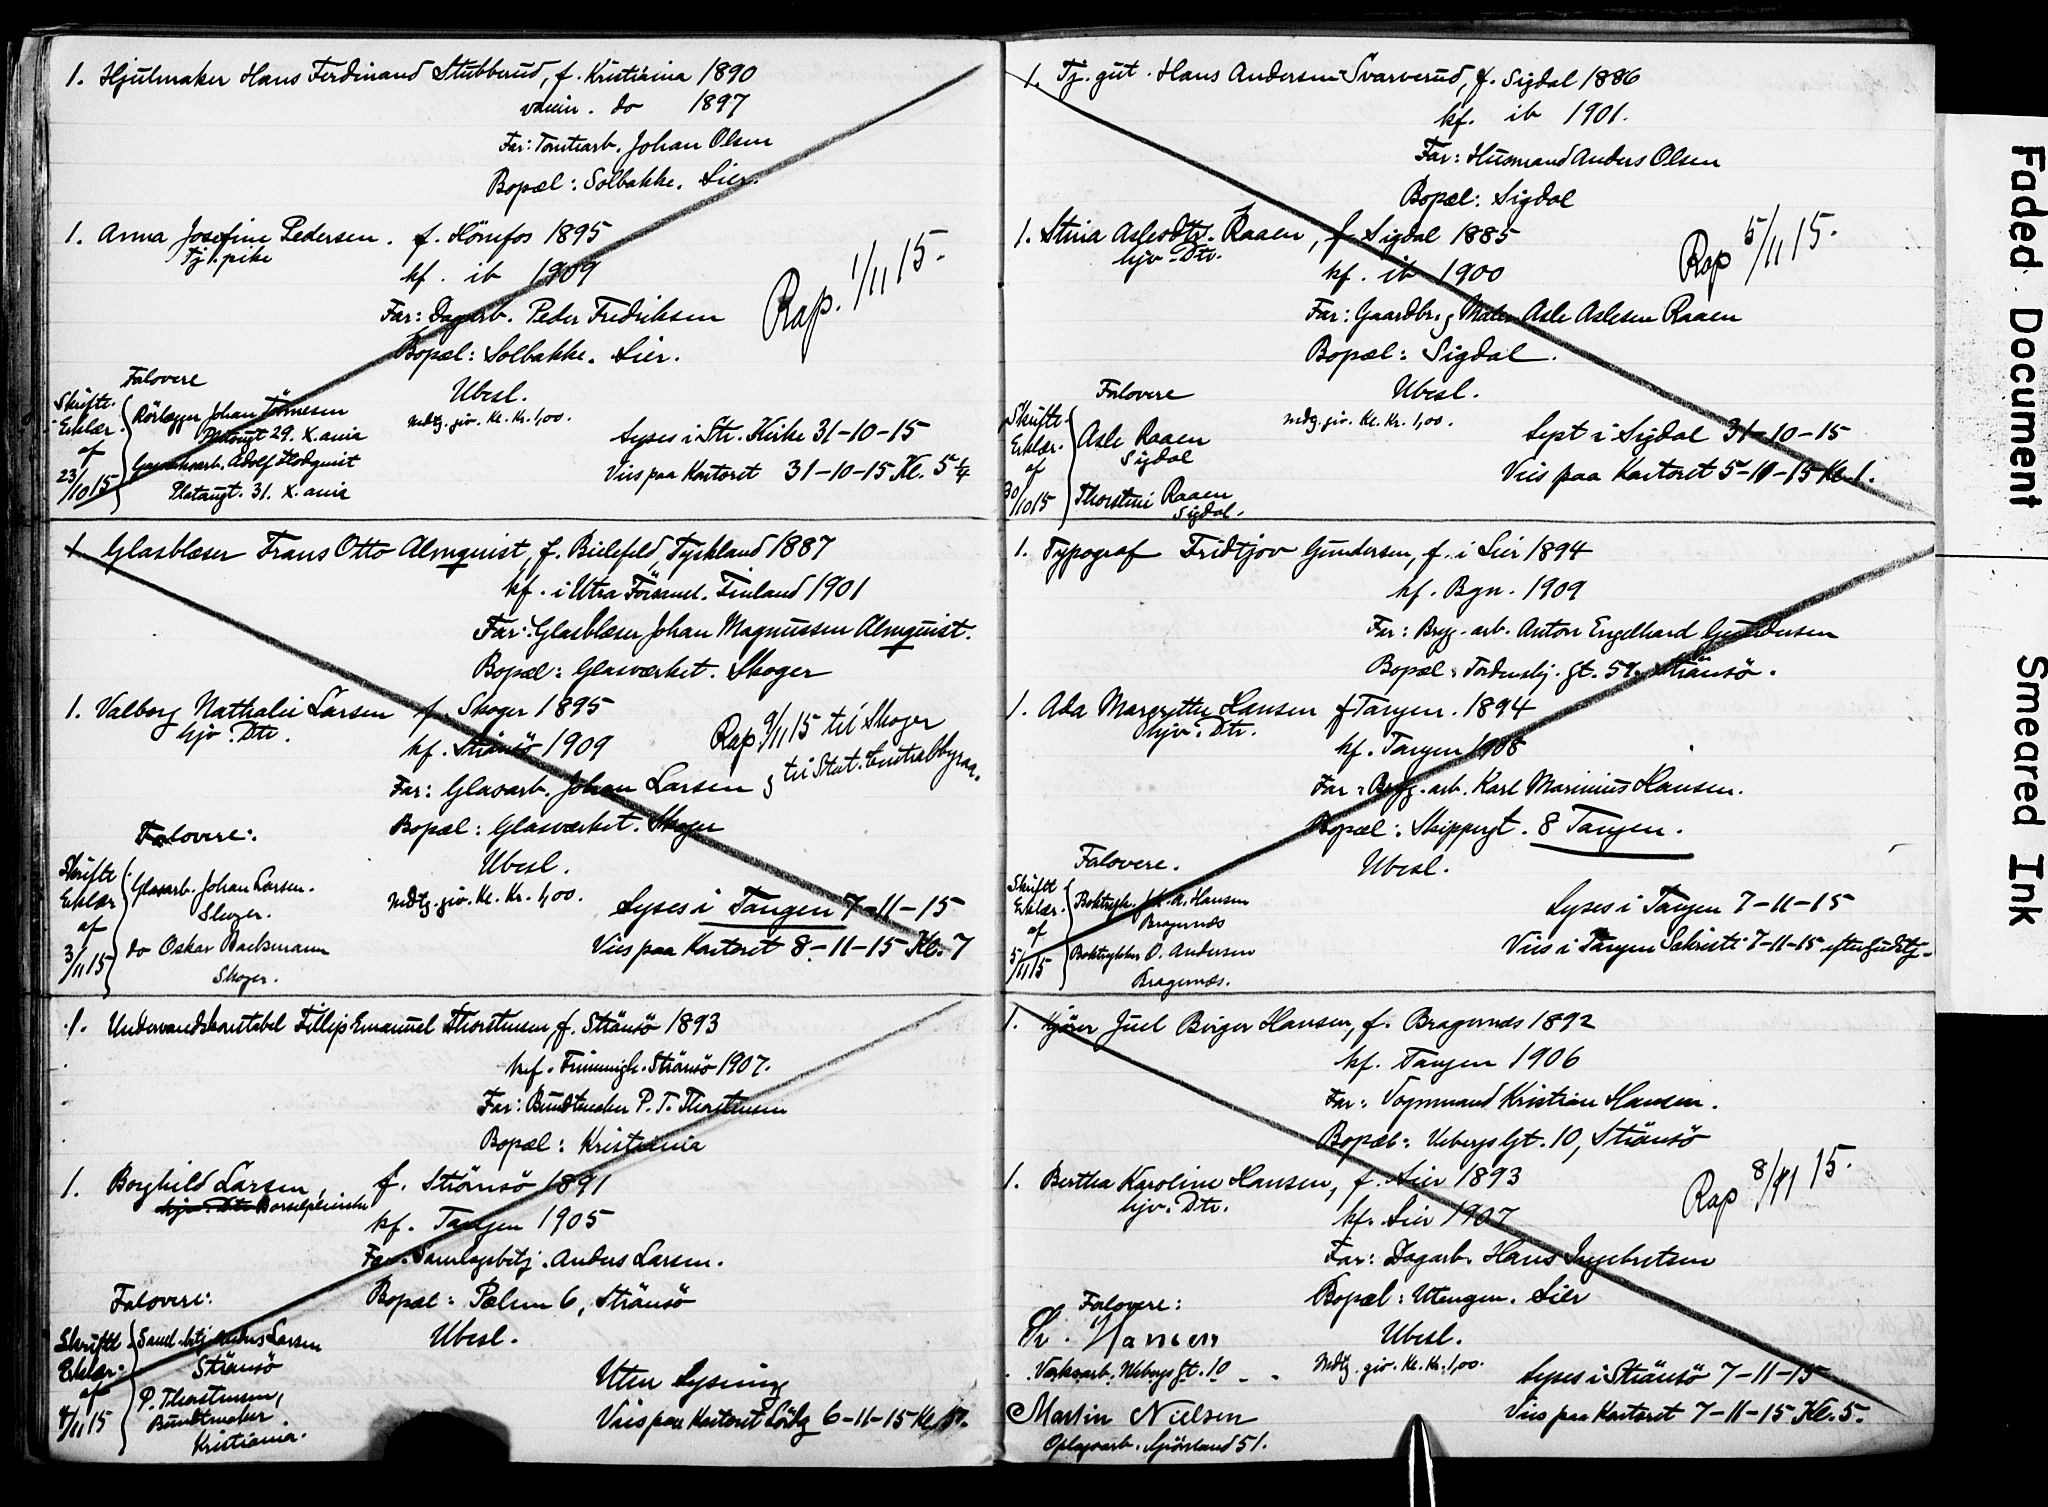 1. Hjulmaker Hans Ferdinand Stubberud, f. Kristiania 1890
vaccin. do 1897
Far: Tomtearb. Johan Olsen
Bopæl: Solbakke. Lier.
1. Anna Josefine Pedersen. f. Hönefos 1895
Tj. pike
kf. ib 1909
Far: Dagarb. Peder Fredriksen
Rap. 1/11 15.
Bopæl: Solbakke. Lier.
Forlovere
Ubesl.
Skriftl. Erklær. af 23/10 15
Rörlægger Johan Tönnesen
29. X. ania
Adolf Hodquist
31. X. ania
Mdtg. giv. Kl. Kr. 1,00.
Lyses i Str. Kirke 31-10-15
Vies paa Kontoret 31-10-15 Kl. 5 1/4
1. Glasblæser Frans Otto Almquist, f. Bielefeld, Tyskland 1887
kf. i Utra Finland 1901
Far: Glasblæser Johan Magnussen Almquist.
Bopæl: Glasværket. Skoger
1. Valborg Nathalie Larsen f. Skoger 1895
hjv. Dtr.
kf. Strömsö 1909
Rap 9/11 15 til Skoger
og til Stat. Centralbyraa.
Far: Glasarb. Johan Larsen
Bopæl: Glasværket. Skoger
Forlovere:
Ubesl.
Skriftl. Erklær af 3/11 15
Glasarb. Johan Larsen.
Skoger.
do Oskar Backsmann
Skoger.
Mdtg. giv. Kl. Kr. 1,00.
Lyses i Tangen 7-11-15
Vies paa Kontoret 8-11-15 Kl. 7
1. Undervandskonstabel Fillip Emanuel Thorstensen, f. Strömsö 1893
kf. Frimenigh. Strömsö 1907.
Far: Bundtmaker P. T. Thorstensen
Bopæl: Kristiania
1. Borghild Larsen, f. Strömsö 1891
hjv. Dtr.
kf. Tangen 1905
Far: Samlagsbetj. Anders Larsen.
Forlovere:
Bopæl: Pælen 6, Strömsö
Skriftl. Erklær. af 4/11 15
Saml. betj. Anders Larsen
Strömsö
P. Thorstensen,
Bundtmaker.
Kristiania.
Ubesl.
Uten Lysning
Vies paa Kontoret Lördg 6-11-15 Kl.
1. Tj. gut. Hans Andersen Svarverud, f. Sigdal 1886
kf. ib 1901.
Far: Husmand Anders Olsen
Bopæl: Sigdal
1. Stina Aslesdtr. Raaen, f. Sigdal 1885
hjv. Dtr.
kf. ib 1900
Rap 5/11 15.
Far: Gaardbr. og Maler Asle Aslesen Raaen
Bopæl: Sigdal.
Forlovere
Ubesl.
Skriftl. Erklær. af 30/10 15
Asle Raaen
Sigdal
Thorstein Raaen
Sigdal.
Mdtg. giv. Kl. Kr. 1,00.
Lyst i Sigdal 31-10-15
Vies paa Kontoret 5-11-15 Kl. 1.
1. Typograf Fridtjov Gundersen, f. i Lier 1894
kf. Bgn. 1909
Far: Bryg. arb. Anton Engelhard Gundersen
Bopæl: Tordenskj. gt. 57, Strömsö.
1. Ada Margrethe Hansen f Tangen. 1894
hjv. Dtr.
kf. Tangen 1908
Far: Bryg. arb. Karl Marinius Hansen.
Bopæl: Skippergt. 8 Tangen.
Forlovere.
Ubesl.
Skriftl. Erklær. af 5/11 15
Boktrykk. Hansen
Bragernæs
Boktrykker O. Andersen
Bragernæs.
Lyses i Tangen 7-11-15
Vies i Tangen Sakristi 7-11-15 efter Gudstj.
1. Kjörer Juel Birger Hansen, f. Bragernæs 1892
kf. Tangen 1906
Far: Vognmand Kristian Hansen.
Bopæl: Uebergs Gt. 10, Strömsö
1. Bertha Karoline Hansen, f. Lier 1893
hjv. Dtr.
kf. Lier 1907
Rap 8/11 15.
Far: Dagarb. Hans Ingebretsen
Bopæl: Utengen. Lier
Forlovere:
Kr. Hansen
Værksarb. Uebergs Gt. 10
Martin Nielsen
Oplagsarb. 51.
Ubesl.
Mdtg. giv. Kl. Kr. 1,00.
Lyses i Strömsö 7-11-15
Vies paa Kontoret 7-11-15 Kl. 5.
Faded Document
Smeared Ink